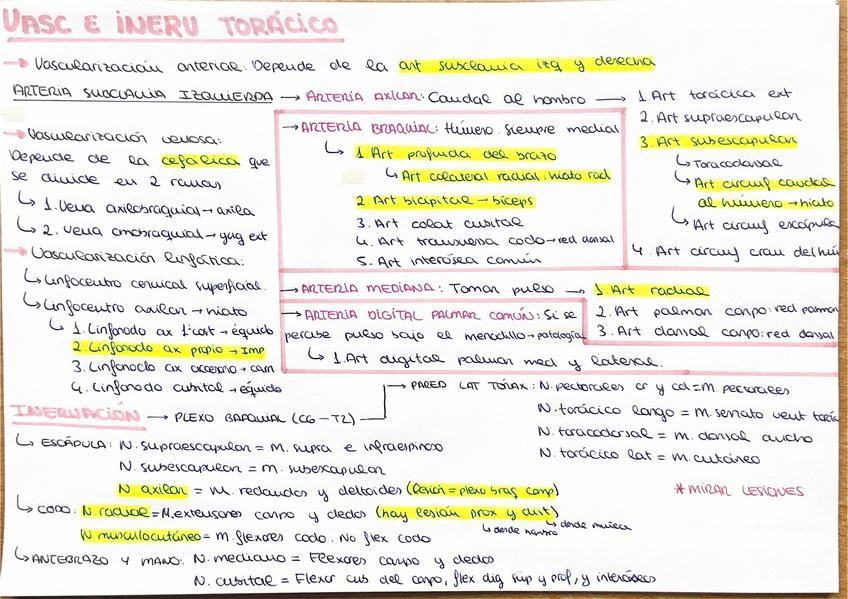 VASC E INERV TORÁCICO
→ Vascularización arterial: Depende de la art subclavia izq y derecha
ARTERIA SUBCLAVIA IZQUIERDA → ARTERIA AXILAR: Caudal al hombro → 1. Art torácica ext
2. Art supraescapular
3. Art subescapular
↳ Toracodorsal
↳ Art circunf caudal
al húmero → hiato
↳ Art circunf escápula
4. Art circunf cran del hum
→ ARTERIA BRAQUIAL: Húmero. Siempre medial
↳ 1. Art profunda del brazo
↳ Art colateral radial: hiato rad
2. Art bicipital → bíceps
3. Art colat cubital
4. Art transversa codo → red dorsal
5. Art interósea común
→ Vascularización venosa:
Depende de la cefálica que
se divide en 2 ramas
↳ 1. Vena axilobraquial → axila
↳ 2. Vena omobraquial → yug ext
→ Vascularización linfática:
↳ Linfocentro cervical superficial.
↳ Linfocentro axilar → hiato
↳ 1. Linfonodo ax 1ªcost → équido
2. Linfonodo ax propio → Imp
3. Linfonodo ax accesorio → carn
4. Linfonodo cubital → équido
→ ARTERIA MEDIANA: Tomar pulso → 1. Art radial
2. Art palmar carpo: red palmar
3. Art dorsal carpo: red dorsal
→ ARTERIA DIGITAL PALMAR COMÚN: Si se
percibe pulso bajo el menudillo → patología
↳ 1. Art digital palmar med y lateral.
INERVACIÓN → PLEXO BRAQUIAL (C6-T2) → PARED LAT TÓRAX: N. pectorales cr y cd = M. pectorales
N. torácico largo = m. serrato vent torác
N. toracodorsal = m. dorsal ancho
N. torácico lat = m. cutáneo
↳ ESCÁPULA: N. supraescapular = M. supra e infraespinoso
N. subescapular = m. subescapular
N. axilar = M. redondos y deltoides (lesión = plexo braq comp)
* MIRAR LESIONES
↳ CODO: N. radial = M. extensores carpo y dedos (hay lesión prox y dist)
↳ desde hombro ↳ desde muñeca
N. musculocutáneo = m. flexores codo. No flex codo
↳ ANTEBRAZO Y MANO: N. mediano = Flexores carpo y dedos
N. cubital = Flexor cub del carpo, flex dig sup y prof, y interóseos